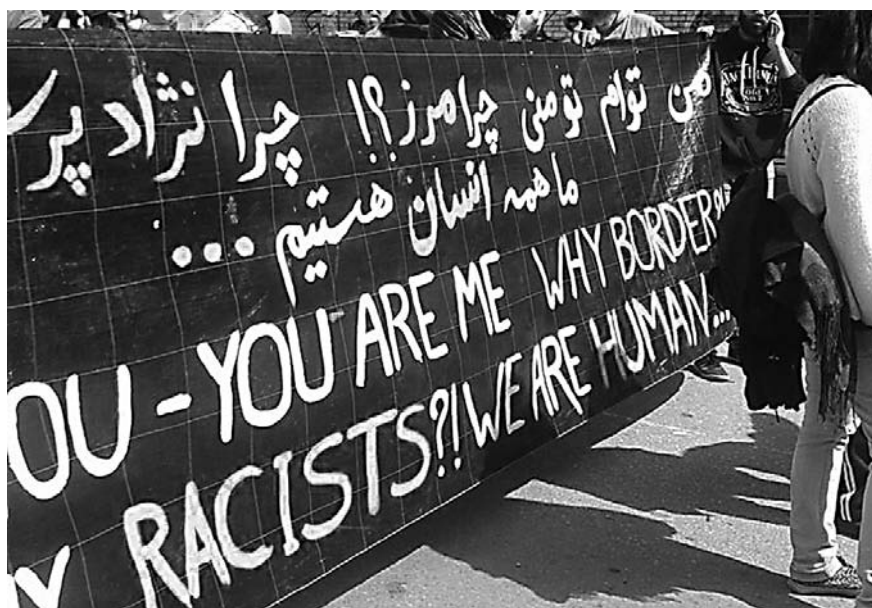 من توام تو منی چرا مرز؟! چرا نژاد پر
ما همه انسان هستیم ...
OU - YOU ARE ME WHY BORDER
Y RACISTS?! WE ARE HUMAN...